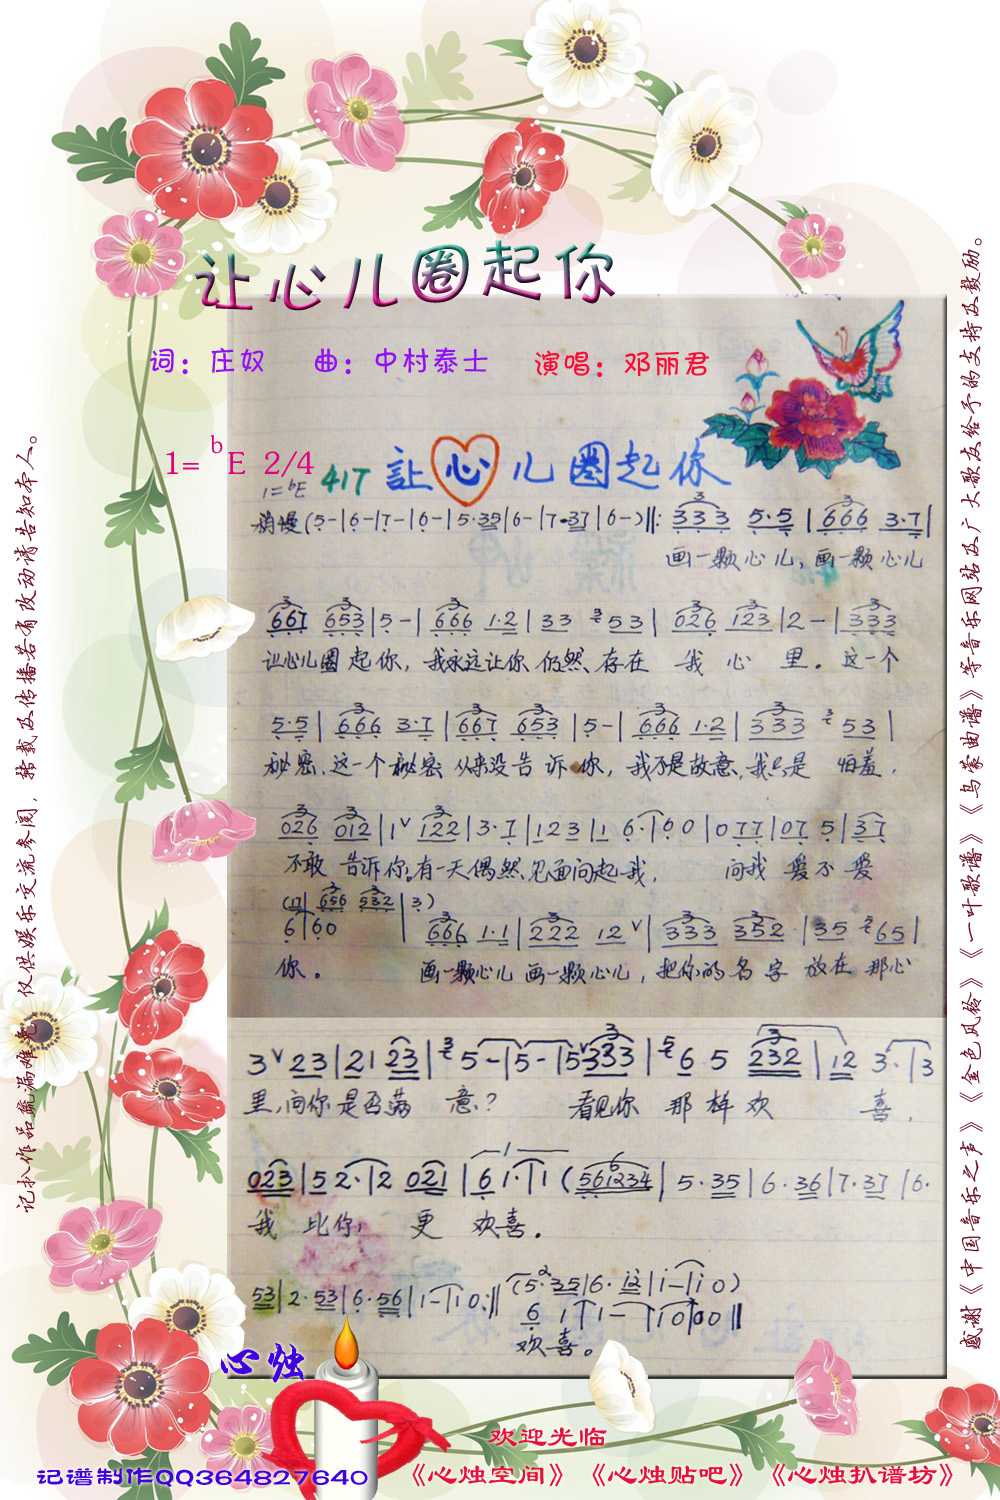 让心儿圈起你
词：庄奴 曲：中村泰士 演唱：邓丽君
1= ᵇE 2/4
1=ᵇE 417 讓心儿圈起你
稍慢 (5-|6-|7-|6-|5·35|6-|7·37|6-)‖: 333 5·5|666 3·7|
画一颗心儿，画一颗心儿
667 653|5-|666 1·2|33 53|026 123|2-|333
让心儿圈起你，我永远让你仍然存在我心里。这一个
5·5|666 3·7|667 653|5-|666 1·2|333 53|
秘密，这一个秘密从来没告诉你，我不是故意，我只是怕羞，
026 012|1ˇ122|3·7|123|1 6·|60|077|07 5|37
不敢告诉你。有一天偶然，见面问起我，问我爱不爱
656 532|3)
6|60 | 666 1·1|222 12ˇ|333 352|35 65|
你。 画一颗心儿画一颗心儿，把你的名字放在那心
3ˇ23|21 23|5-|5-|5ˇ333|6·5 232|12 3·|3
里，问你是否满意？看见你那样欢喜，
023|52·|2 021|61·|1 (561234|5·35|6·36|7·37|6·
我比你，更欢喜。
53|2·53|6·56|1-|10:‖(5·35|6·12|1-|10)
6 1|1-|10|00‖
欢喜。
心烛
欢迎光临
记谱制作QQ364827640 《心烛空间》《心烛贴吧》《心烛扒谱坊》
记扒作品疏漏难免，仅供娱乐交流参阅，转载及传播若有改动请告知本人。
感谢《中国音乐之声》《金色风铃》《一叶歌谱》《乌蒙曲谱》等音乐网站及广大歌友给予的支持及鼓励。